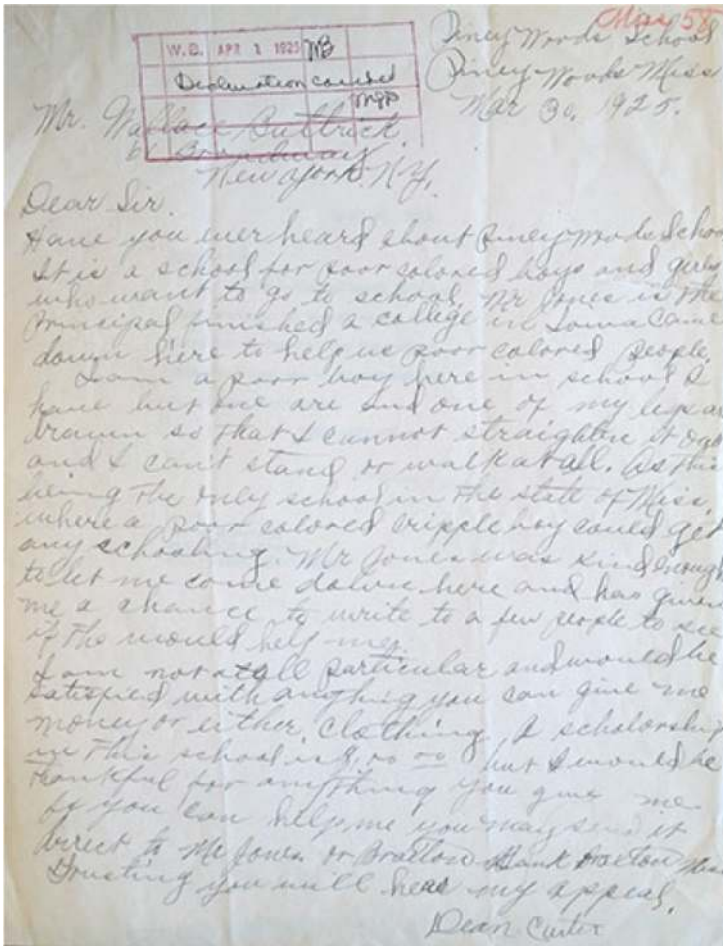 May 5
Piney Woods School
Piney Woods Miss
Mar 30, 1925.
W.B. APR 1 1925 MB
Declination
Mr. Wallace Buttrick
Broadway
New York. N.Y.
Dear Sir.
Have you ever heard about Piney Woods School
It is a school for poor colored boys and girls
who want to go to school, Mr Jones is the
Principal finished a college in Iowa Came
down here to help us poor colored people.
I am a poor boy here in school I
have but one arm and one of my legs
drawn so that I cannot straighten it out
and I can't stand or walk at all. As this
being the only school in the state of Miss.
where a poor colored cripple boy could get
any schooling. Mr Jones was kind enough
to let me come down here and has given
me a chance to write to a few people to see
if the would help me
I am not atall particular and would be
satisfied with anything you can give me
money or either, clothing, A scholarship
in this school is but I would be
thankful for anything you give me
If you can help me you may send it
direct to Mr Jones or Braxton Bank Braxton Miss
Trusting you will hear my appeal.
Dean Carter